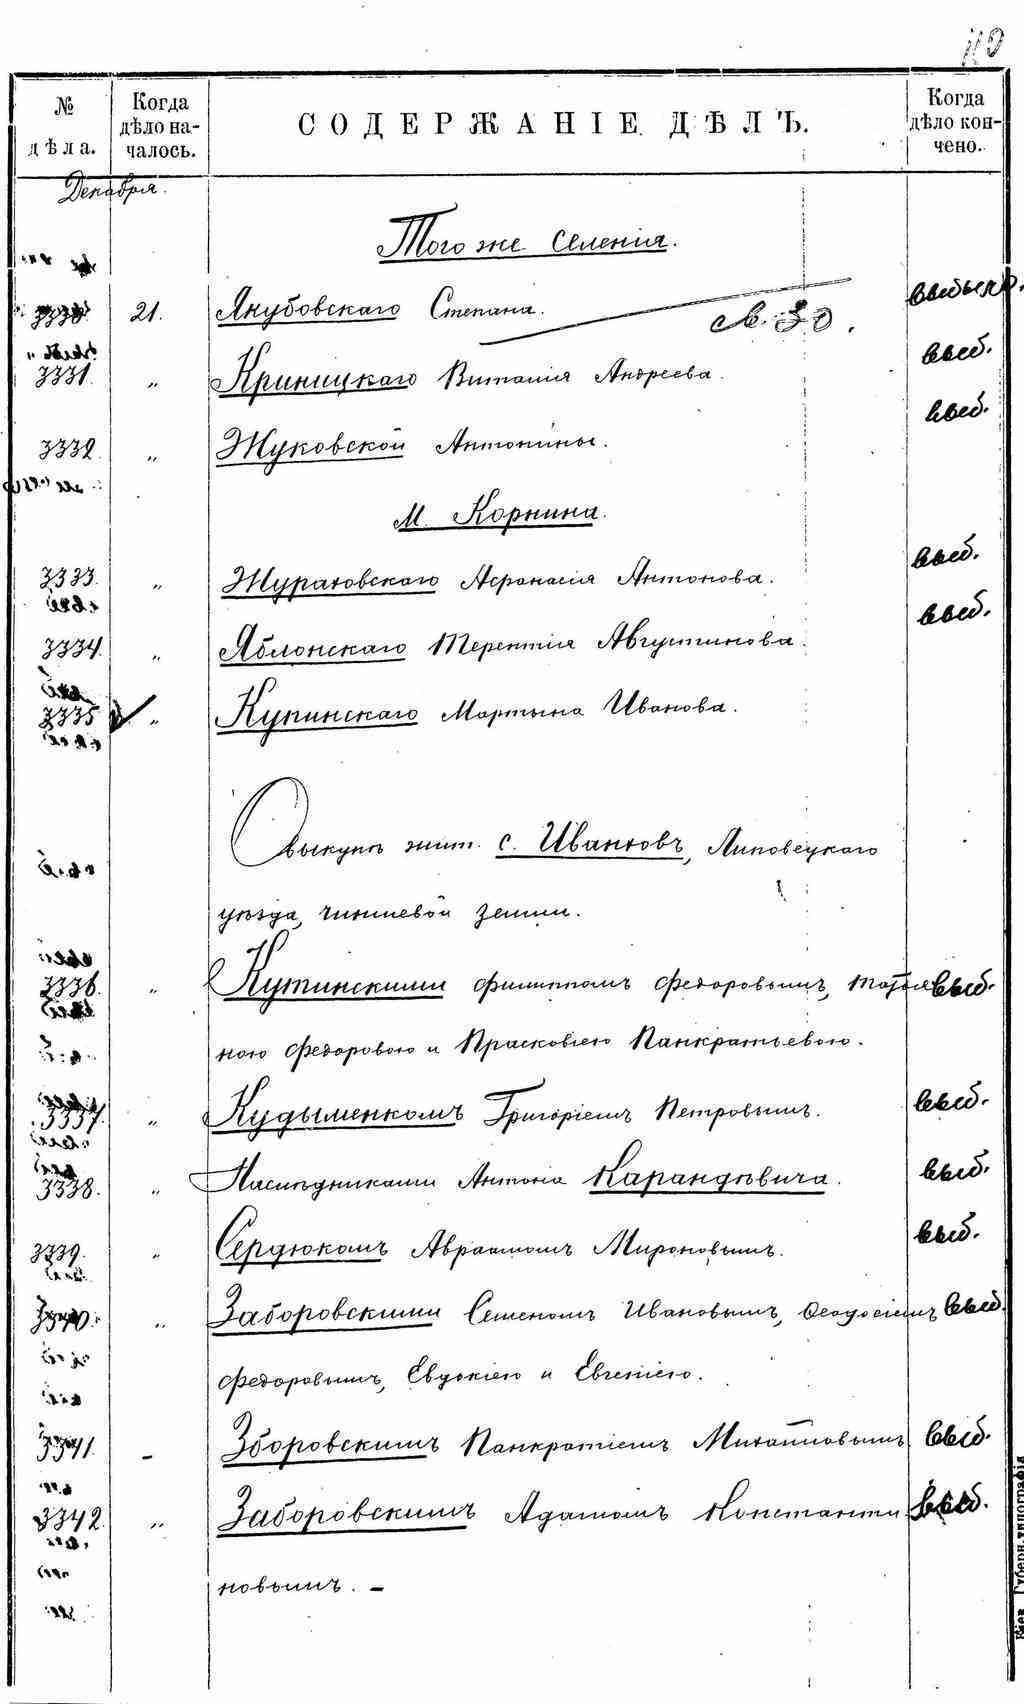 110
№ дѣла.
Когда дѣло началось.
СОДЕРЖАНІЕ ДѢЛЪ.
Когда дѣло кончено.
Декабря.
Того же селенія.
3330 21. Якубовскаго Степана. св. 30.
3331. „ Криницкаго Виталія Андреева. выб.
3332. „ Жуковской Антонины. выб.
М. Корнина.
3333. „ Журатовскаго Афанасія Антонова. выб.
3334. „ Яблонскаго Терентія Августинова. выб.
3335 „ Купинскаго Мартына Иванова.
О выкупѣ жит. с. Иваньковъ, Липовецкаго
уѣзда, чиншевой земли.
3336. „ Кутинскими Филиппомъ Федоровымъ, Татья выб.
ною Федоровою и Прасковіею Панкратьевою.
3337. „ Кудыменкомъ Григоріемъ Петровымъ. выб.
3338. „ Наслѣдниками Антона Карандѣвича. выб.
3339. „ Сердюкомъ Авраамомъ Мироновымъ. выб.
3340. „ Заборовскими Семеномъ Ивановымъ, Феодосіемъ выб.
Федоровымъ, Евдокіею и Евгеніею.
3341. – Зборовскимъ Панкратіемъ Михайловымъ. выб.
3342. „ Заборовскимъ Адамомъ Константи выб.
новымъ. –
Кіев. Губерн. типографія